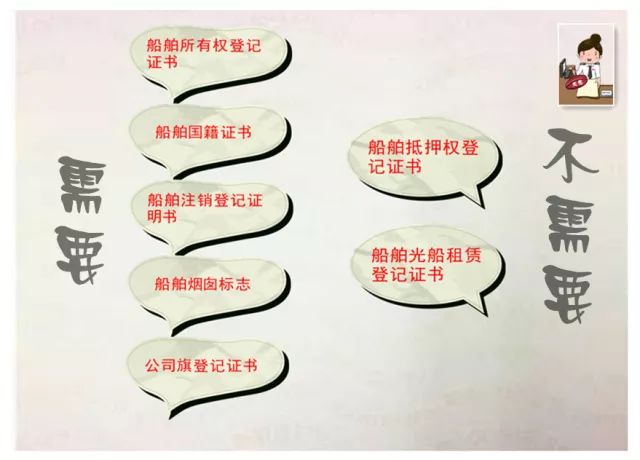 船舶所有权登记
证书
船舶国籍证书
船舶注销登记证
明书
船舶烟囱标志
公司旗登记证书
需要
船舶抵押权登
记证书
船舶光船租赁
登记证书
不需要